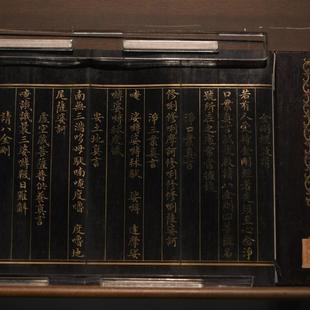 若有人受持金剛經者先須至心念淨
口業真言然後啓請八金剛四菩薩名
號所在之處常當擁護
淨口業真言
修唎修唎摩訶修唎修修唎薩婆訶
淨三業真言
唵 娑嚩婆嚩秫馱 娑嚩 達摩娑
嚩婆嚩秫度憾
安土地真言
南無三滿哆母馱喃唵度嚕 度嚕地
尾薩婆訶
虛空藏菩薩普供養真言
請八金剛